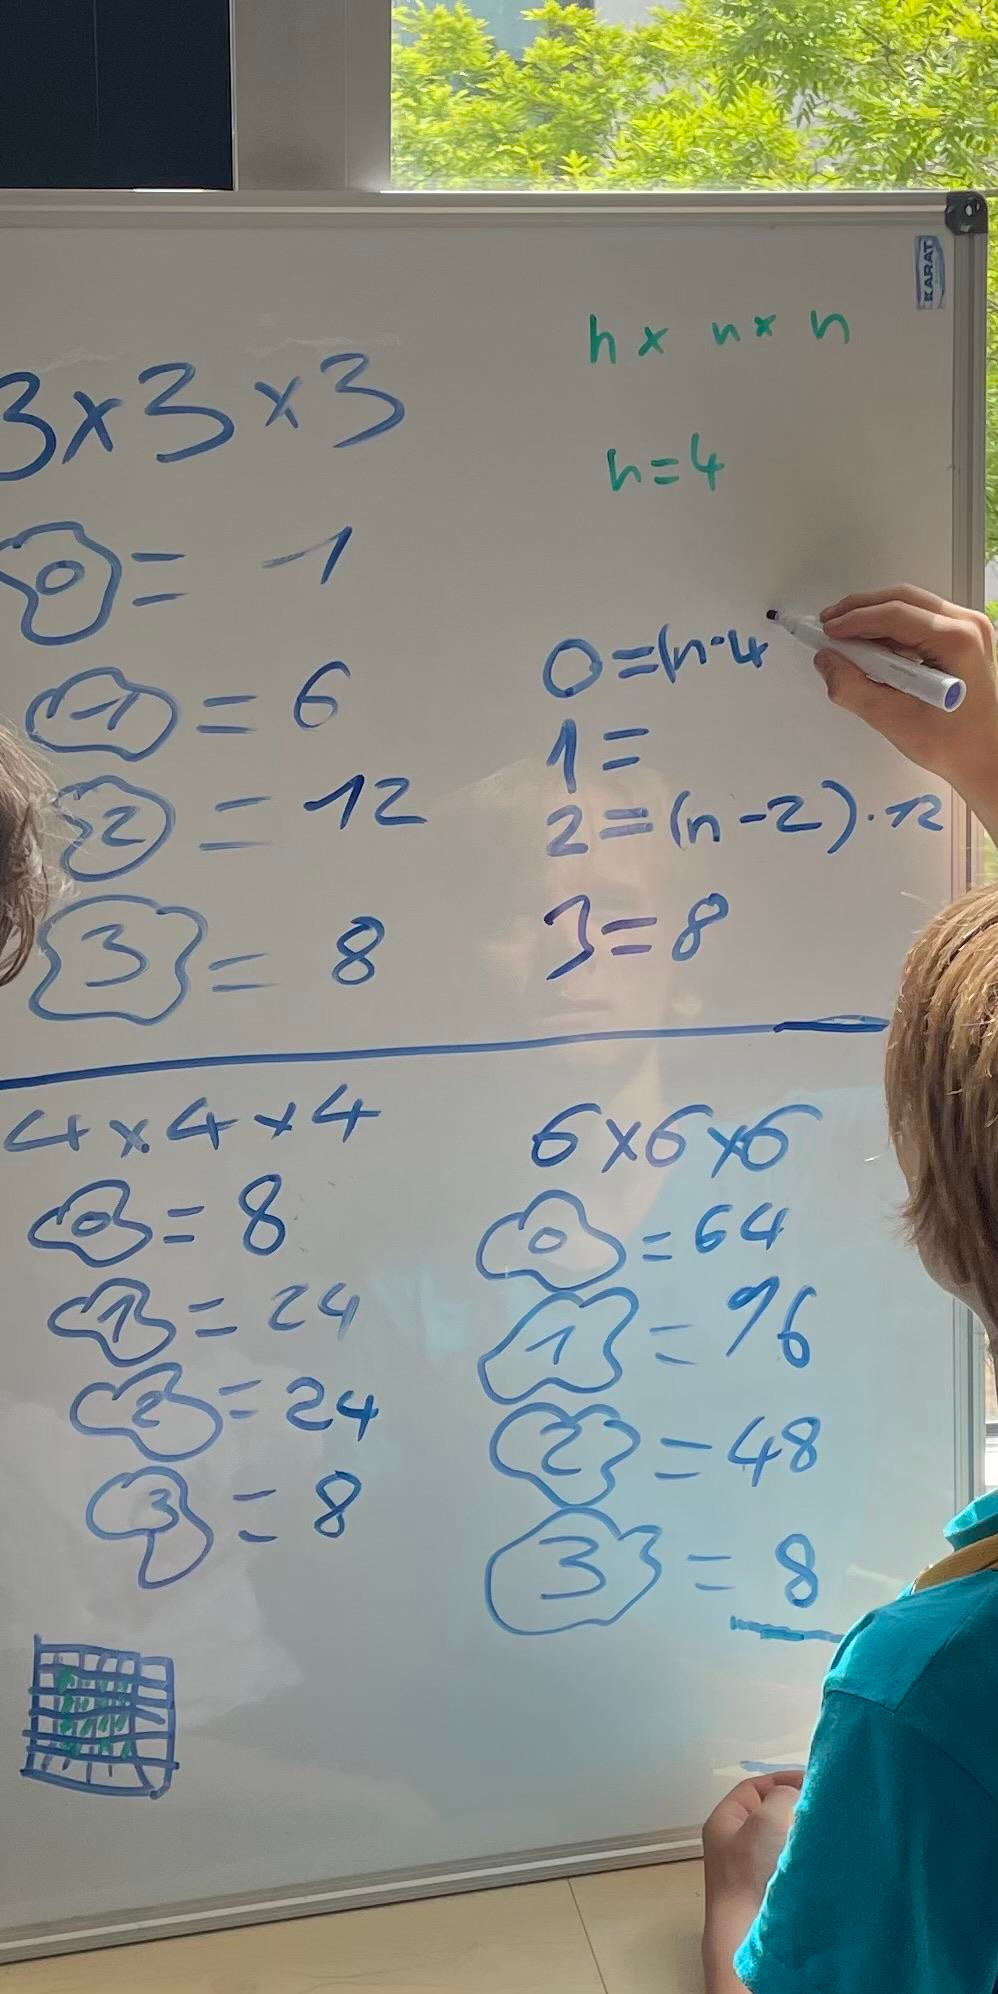 KARAT
n x n x n
n=4
3x3x3
0 = 1
1 = 6
2 = 12
3 = 8
0=(n-4
1=
2=(n-2)·12
3=8
4x4x4
0 = 8
1 = 24
2 = 24
3 = 8
6x6x6
0 = 64
1 = 96
2 = 48
3 = 8